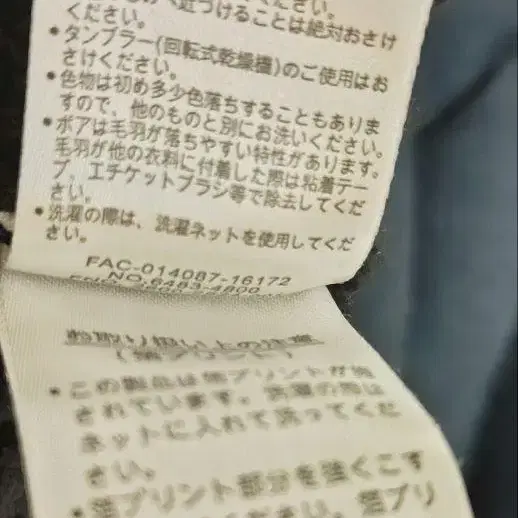 ください。
近づけることは絶対おさけ
ください。
•タンブラー(回転式乾燥機)のご使用はお
さけください。
•色物は初め多少色落ちすることもありま
すので、他のものと別にお洗いください。
•ボアは毛羽が落ちやすい特性があります。
毛羽が他の衣料に付着した際は粘着テー
プ、エチケットブラシ等で除去してくだ
さい。
•洗濯の際は、洗濯ネットを使用してくだ
さい。
FAC-014087-16172
NO.6483-4800
お取り扱い上の注意
(箔プリント)
•この製品は箔プリントが施
されています。洗濯の際は
ネットに入れて洗ってくだ
さい。
•箔プリント部分を強くこす
ください。箔プリ